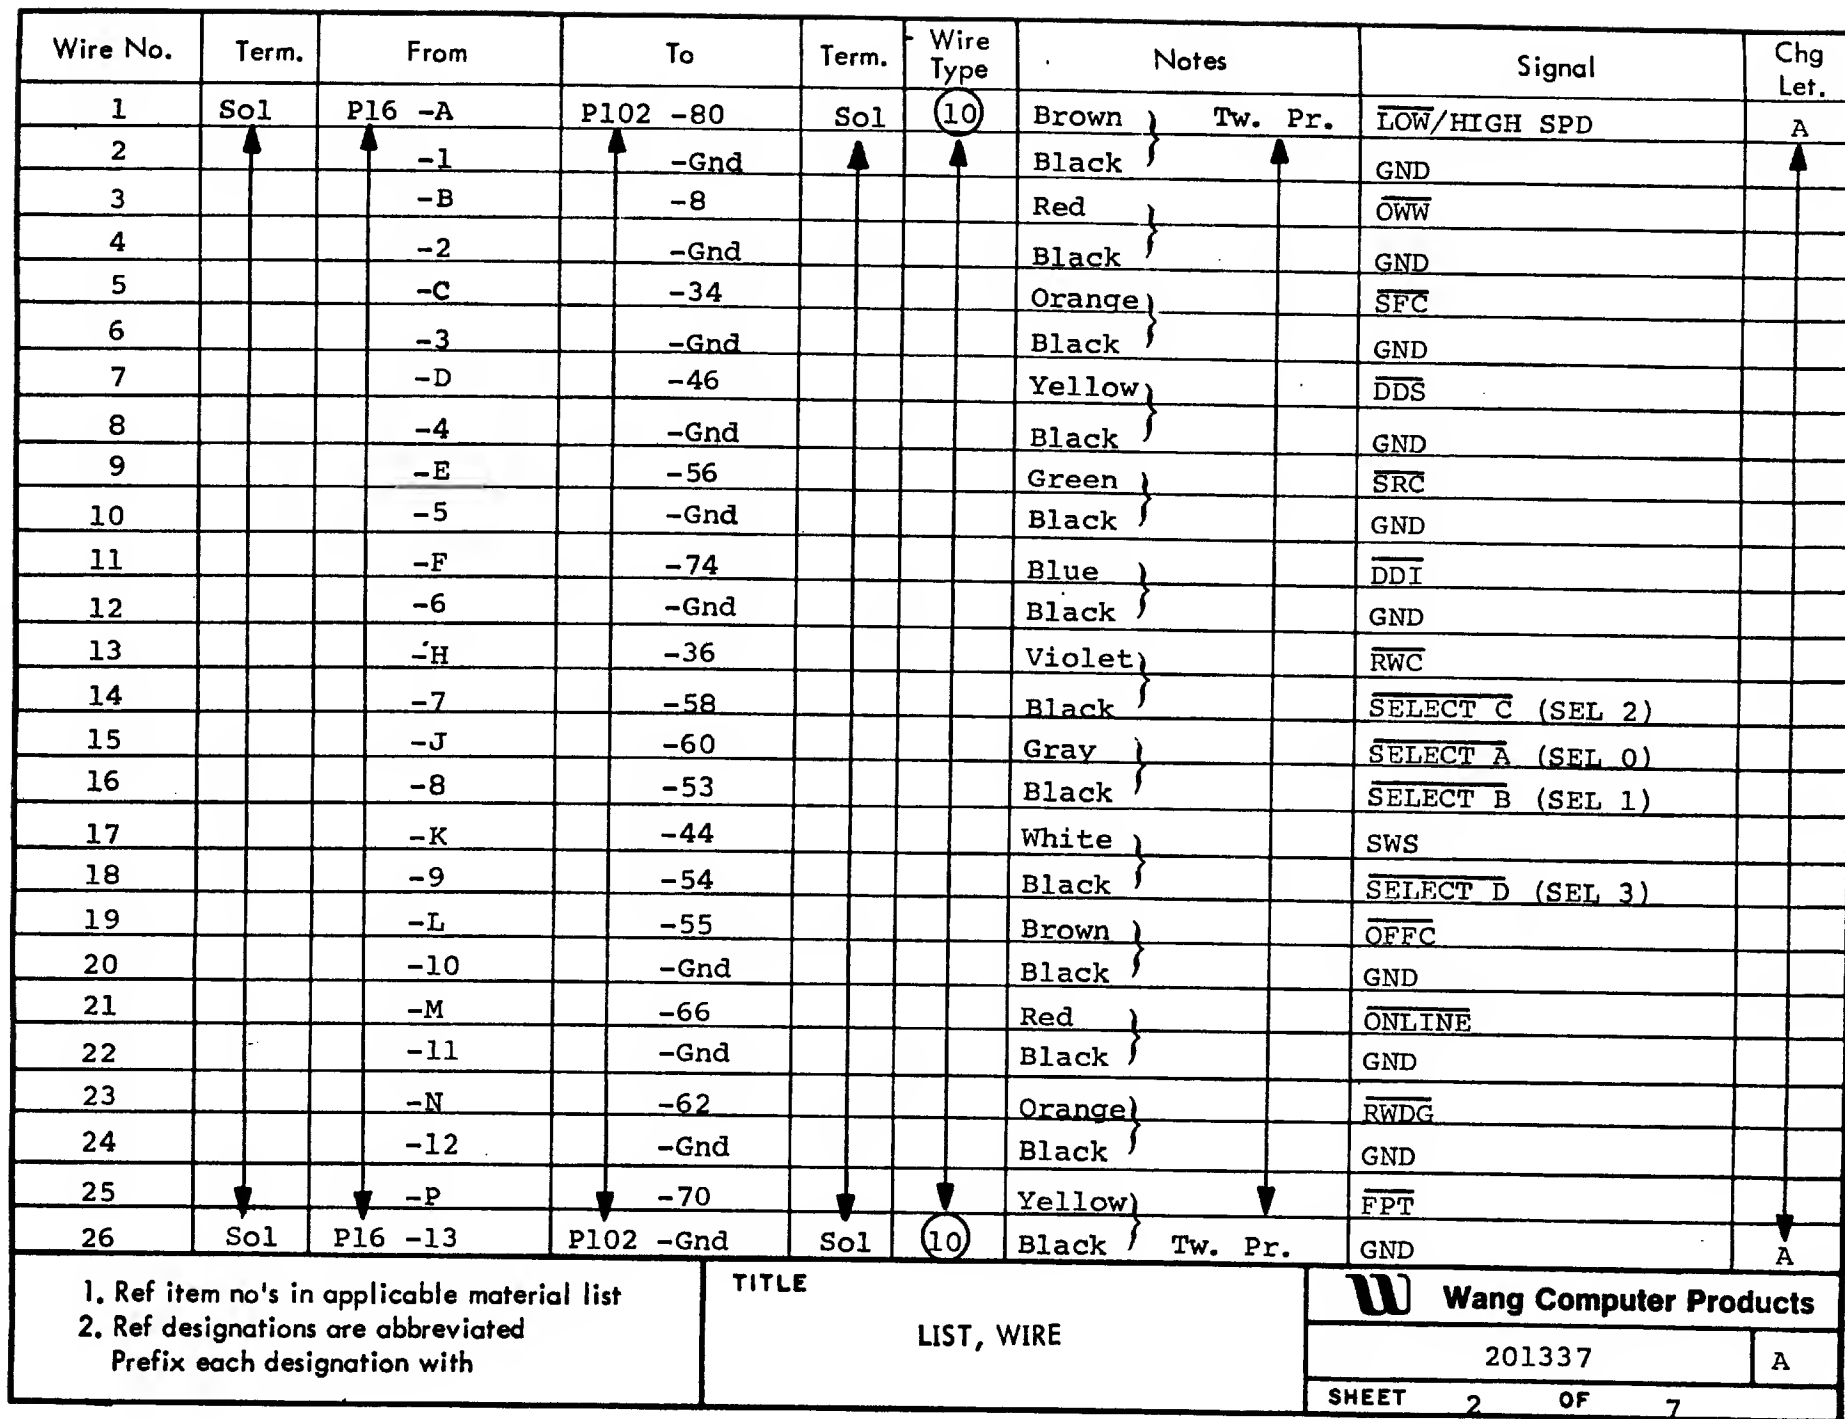 Wire No. Term. From To Term. Wire Type Notes Signal Chg Let.
1 Sol P16 -A P102 -80 Sol 10 Brown } Tw. Pr. L̅O̅W̅/HIGH SPD A
2 -1 -Gnd Black GND
3 -B -8 Red } O̅W̅W̅
4 -2 -Gnd Black GND
5 -C -34 Orange } S̅F̅C̅
6 -3 -Gnd Black GND
7 -D -46 Yellow } D̅D̅S̅
8 -4 -Gnd Black GND
9 -E -56 Green } S̅R̅C̅
10 -5 -Gnd Black GND
11 -F -74 Blue } D̅D̅I̅
12 -6 -Gnd Black GND
13 -H -36 Violet } R̅W̅C̅
14 -7 -58 Black S̅E̅L̅E̅C̅T̅ ̅C̅ (SEL 2)
15 -J -60 Gray } S̅E̅L̅E̅C̅T̅ ̅A̅ (SEL 0)
16 -8 -53 Black S̅E̅L̅E̅C̅T̅ ̅B̅ (SEL 1)
17 -K -44 White } SWS
18 -9 -54 Black S̅E̅L̅E̅C̅T̅ ̅D̅ (SEL 3)
19 -L -55 Brown } O̅F̅F̅C̅
20 -10 -Gnd Black GND
21 -M -66 Red } O̅N̅L̅I̅N̅E̅
22 -11 -Gnd Black GND
23 -N -62 Orange } R̅W̅D̅G̅
24 -12 -Gnd Black GND
25 -P -70 Yellow } F̅P̅T̅
26 Sol P16 -13 P102 -Gnd Sol 10 Black Tw. Pr. GND A
1. Ref item no's in applicable material list
2. Ref designations are abbreviated
Prefix each designation with
TITLE
LIST, WIRE
Wang Computer Products
201337 A
SHEET 2 OF 7